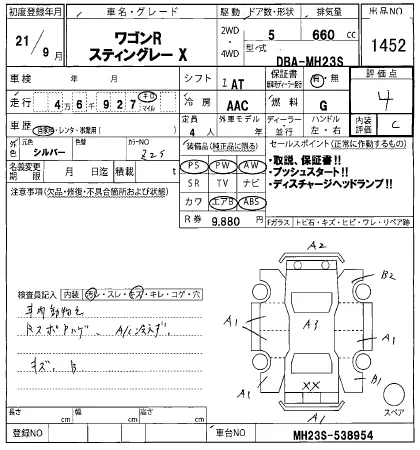 初度登録年月 車名・グレード 駆動 ドア数・形状 排気量 出品NO
21/9月 ワゴンR スティングレー X 2WD・4WD 5 660 cc 1452
型式 DBA-MH23S
車検 年 月 シフト I AT 保証書 有・無 評価点 4
走行 4万6千927 キロ マイル 冷房 AAC 燃料 G 内装評価 C
定員 4人 外車モデル 年 ディーラー・並行 ハンドル 左・右
車歴 自家用・レンタ・事業用( )
外色 元色 シルバー 色替 カラーNO Z2S
名義変更期限 月 日迄 積載 t
装備品(純正品に限る)
PS PW AW
SR TV ナビ
カワ エアB ABS
R券 9,880 円
セールスポイント(正常に作動するもの)
・取説、保証書!!
・プッシュスタート!!
・ディスチャージヘッドランプ!!
注意事項(欠品・修復・不具合箇所および状態)
Fガラス トビ石・キズ・ヒビ・ワレ・リペア跡
検査員記入 内装 汚レ・スレ・キズ・キレ・コゲ・穴
キズ、B
A2
B2
A1
A3
A1
A1
XX
B1
A1
スペア
長さ cm 幅 cm 高さ cm
登録NO 車台NO MH23S-538954